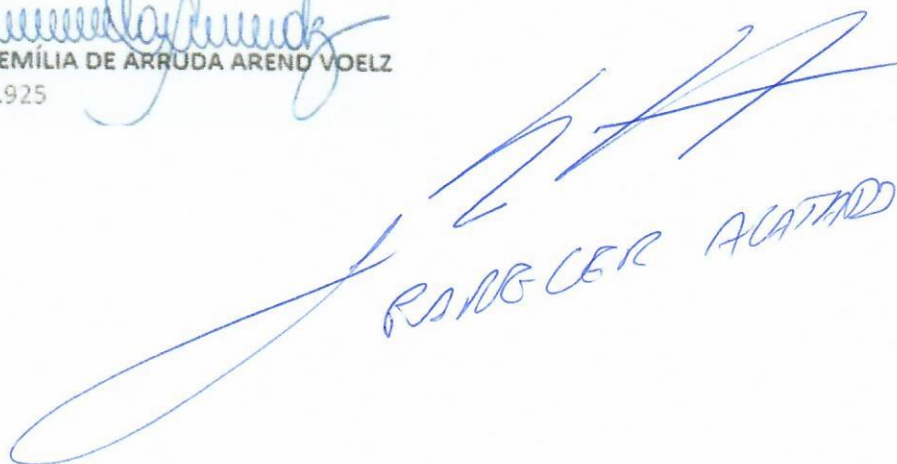 EMÍLIA DE ARRUDA AREND VOELZ
.925
PARECER ACATADO